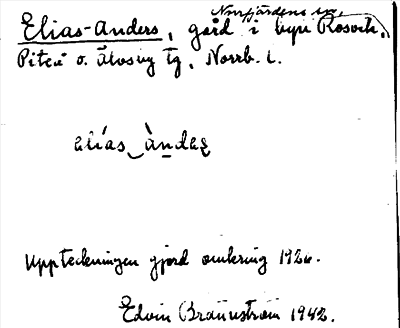 Norrfjärdens sn,
Elias-Anders, gård i byn Rosvik.
Piteå o. Älvsby tg, Norrb. l.
elías àndeʂ
Uppteckningen gjord omkring 1926.
Edvin Brännström 1942.